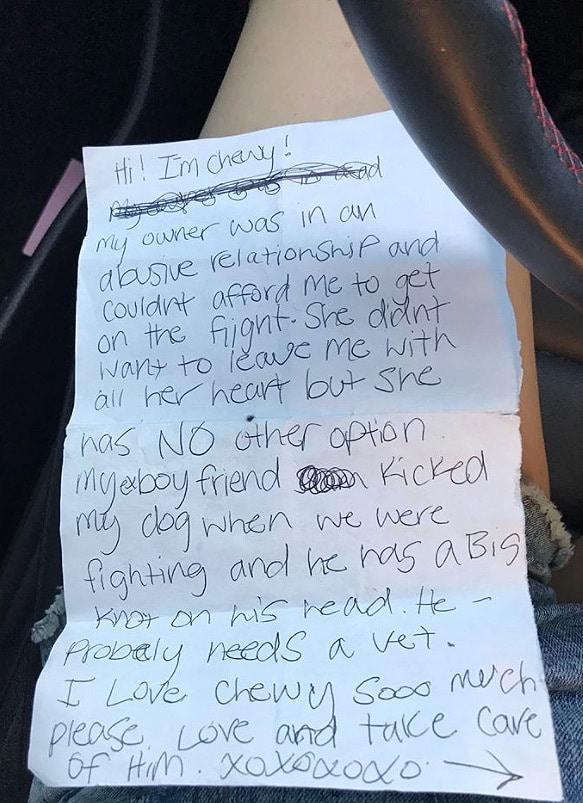 Hi! I'm chewy!
my owner was in an
abusive relationship and
couldnt afford me to get
on the flight. She didnt
want to leave me with
all her heart but she
has NO other option.
my exboyfriend kicked
my dog when we were
fighting and he has a Big
knot on his head. He -
Probely needs a vet.
I Love chewy sooo much
please Love and take care
of Him. xoxoxoxo →